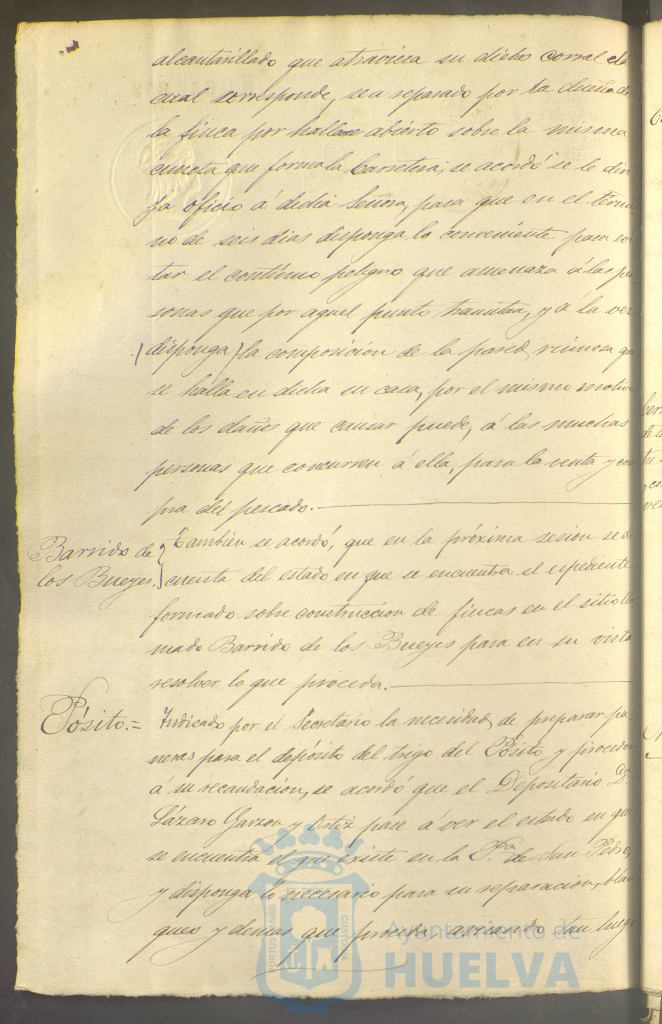 alcantarillado que atraviesa su dicho corral el
cual corresponde, sea separado por la dueña de
la finca por hallarse abierto sobre la misma
cuneta que forma la Carretera, se acordó se le diri
ja oficio á dicha Señora, para que en el térmi
no de seis dias disponga lo conveniente para evi
tar el contínuo peligro que amenaza á las per
sonas que por aquel punto transitan, y á la vez
(disponga) la composicion de la pared ruinosa que
se halla en dicha su casa, por el mismo motivo
de los daños que causar puede, á las muchas
personas que concurren á ella, para la venta y com
pra del pescado.
Barrido de
los Bueyes.
Tambien se acordó, que en la próxima sesion se dé
cuenta del estado en que se encuentra el espediente
formado sobre construccion de fincas en el sitio lla
mado Barrido de los Bueyes para en su vista
resolver lo que proceda.
Pósito.=
Indicado por el Secretario la necesidad de preparar pa
neras para el depósito del trigo del Pósito y proceder
á su recaudacion, se acordó que el Depositario D.
Lázaro Garzon y Ortiz pase á ver el estado en que
se encuentra el que existe en la P.ª de San Pedro,
y disponga lo necesario para su reparacion, blan
queo y demas que proceda, avisando tan luego
Ayuntamiento de
HUELVA
PORTUS MARIS
CUSTODIA